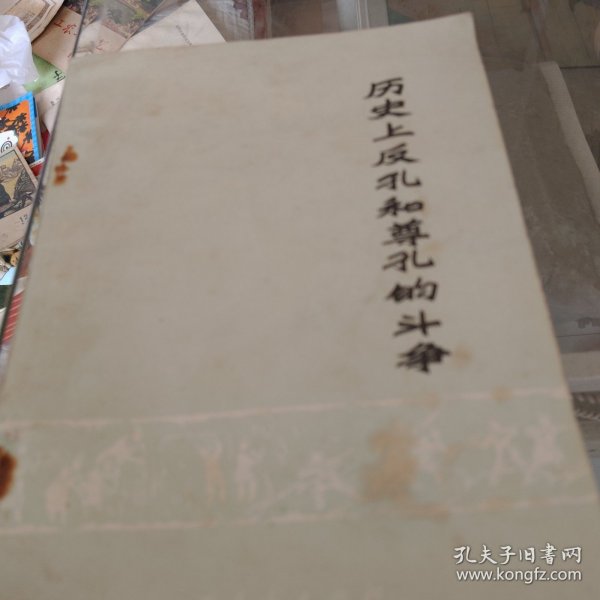 历史上反孔和尊孔的斗争
孔夫子旧书网
www.kongfz.com